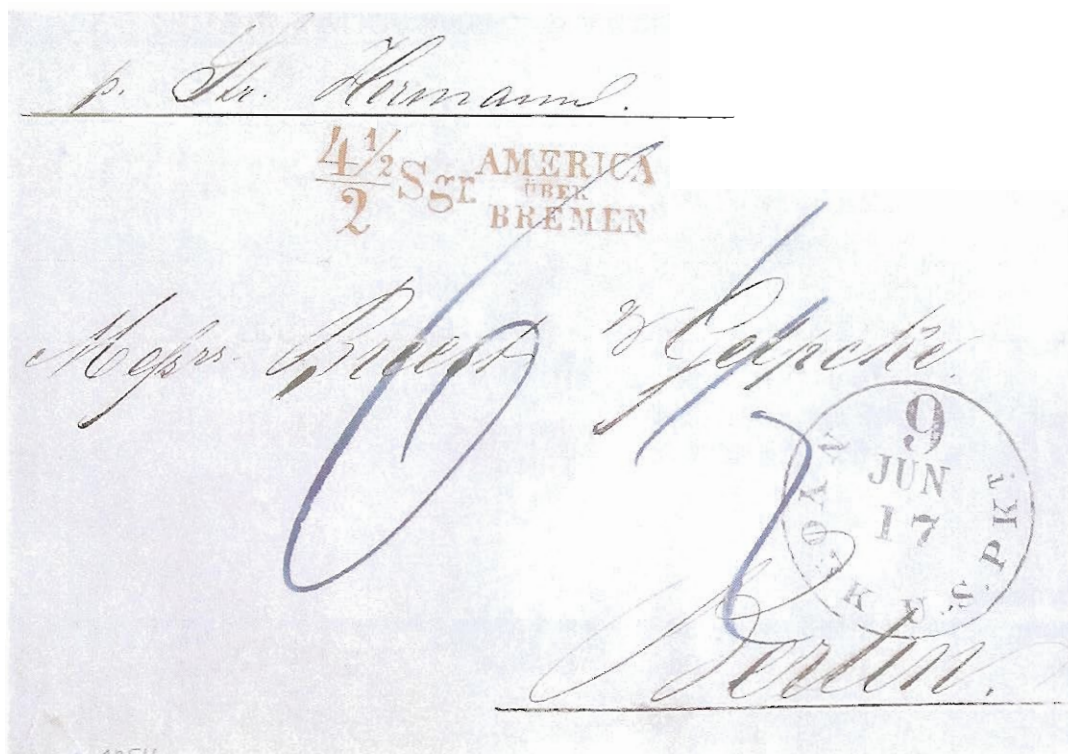 p. Str. Hermann.
4 1/2 Sgr. AMERICA
2 ÜBER
BREMEN
Messrs. Breest & Gelpcke
9
JUN
17
N. YORK U.S. PKT.
Berlin.